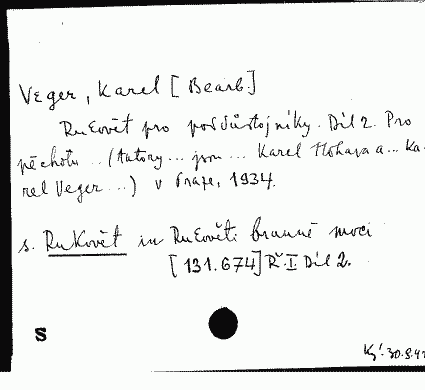 Veger, Karel [Bearb.]
Rukovět pro poddůstojníky. Díl 2. Pro
pěchotu .. (Autory ... jsou ... Karel Hohaza a ... Ka-
rel Veger ...) v Praze, 1934.
s. Rukovět in Rukověti branné moci
[131.674] Ř. I Díl 2.
S
30.9.41